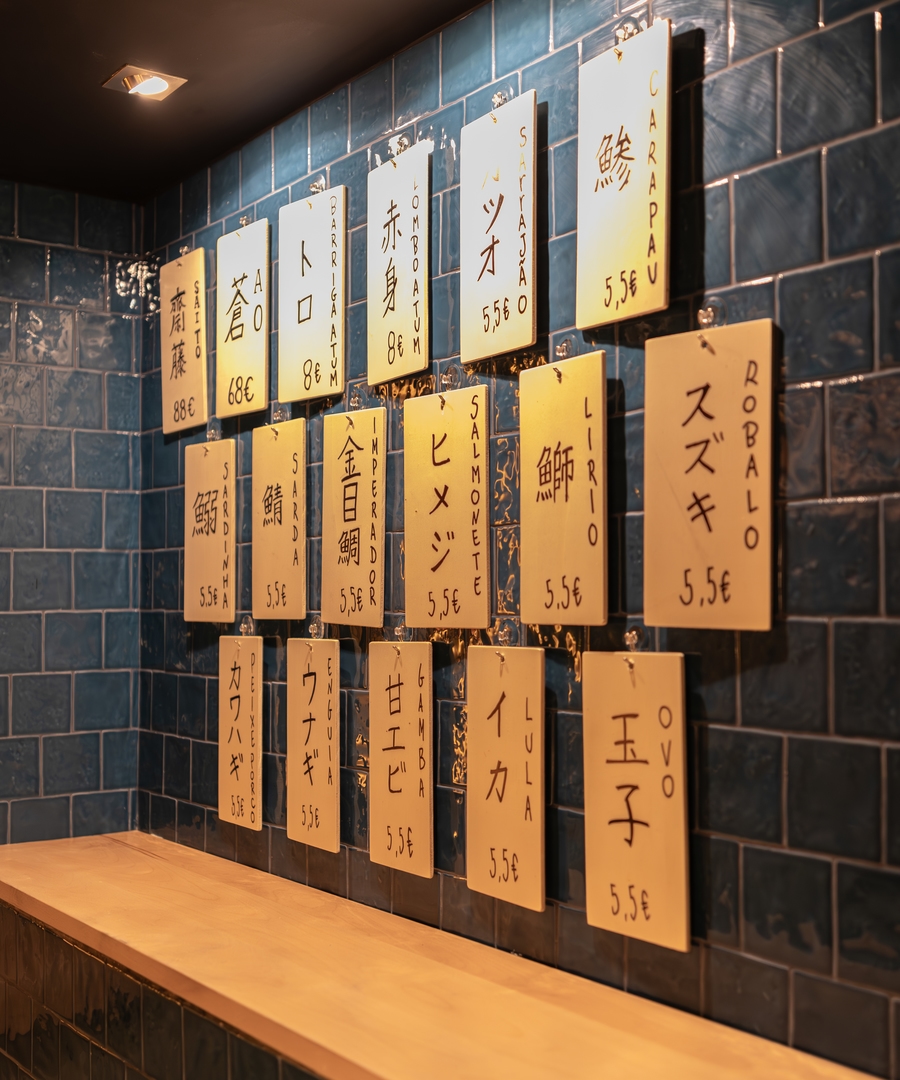 齋藤
SAITO
88€
蒼
AO
68€
トロ
BARRIGA ATUM
8€
赤身
LOMBO ATUM
8€
ツオ
SARRAJÃO
5,5€
鯵
CARAPAU
5,5€
鰯
SARDINHA
5,5€
鯖
SARDA
5,5€
金目鯛
IMPERADOR
5,5€
ヒメジ
SALMONETE
5,5€
鰤
LIRIO
5,5€
スズキ
ROBALO
5,5€
カワハギ
PEIXEPORCO
5,5€
ウナギ
ENGUIA
5,5€
甘エビ
GAMBA
5,5€
イカ
LULA
5,5€
玉子
OVO
5,5€